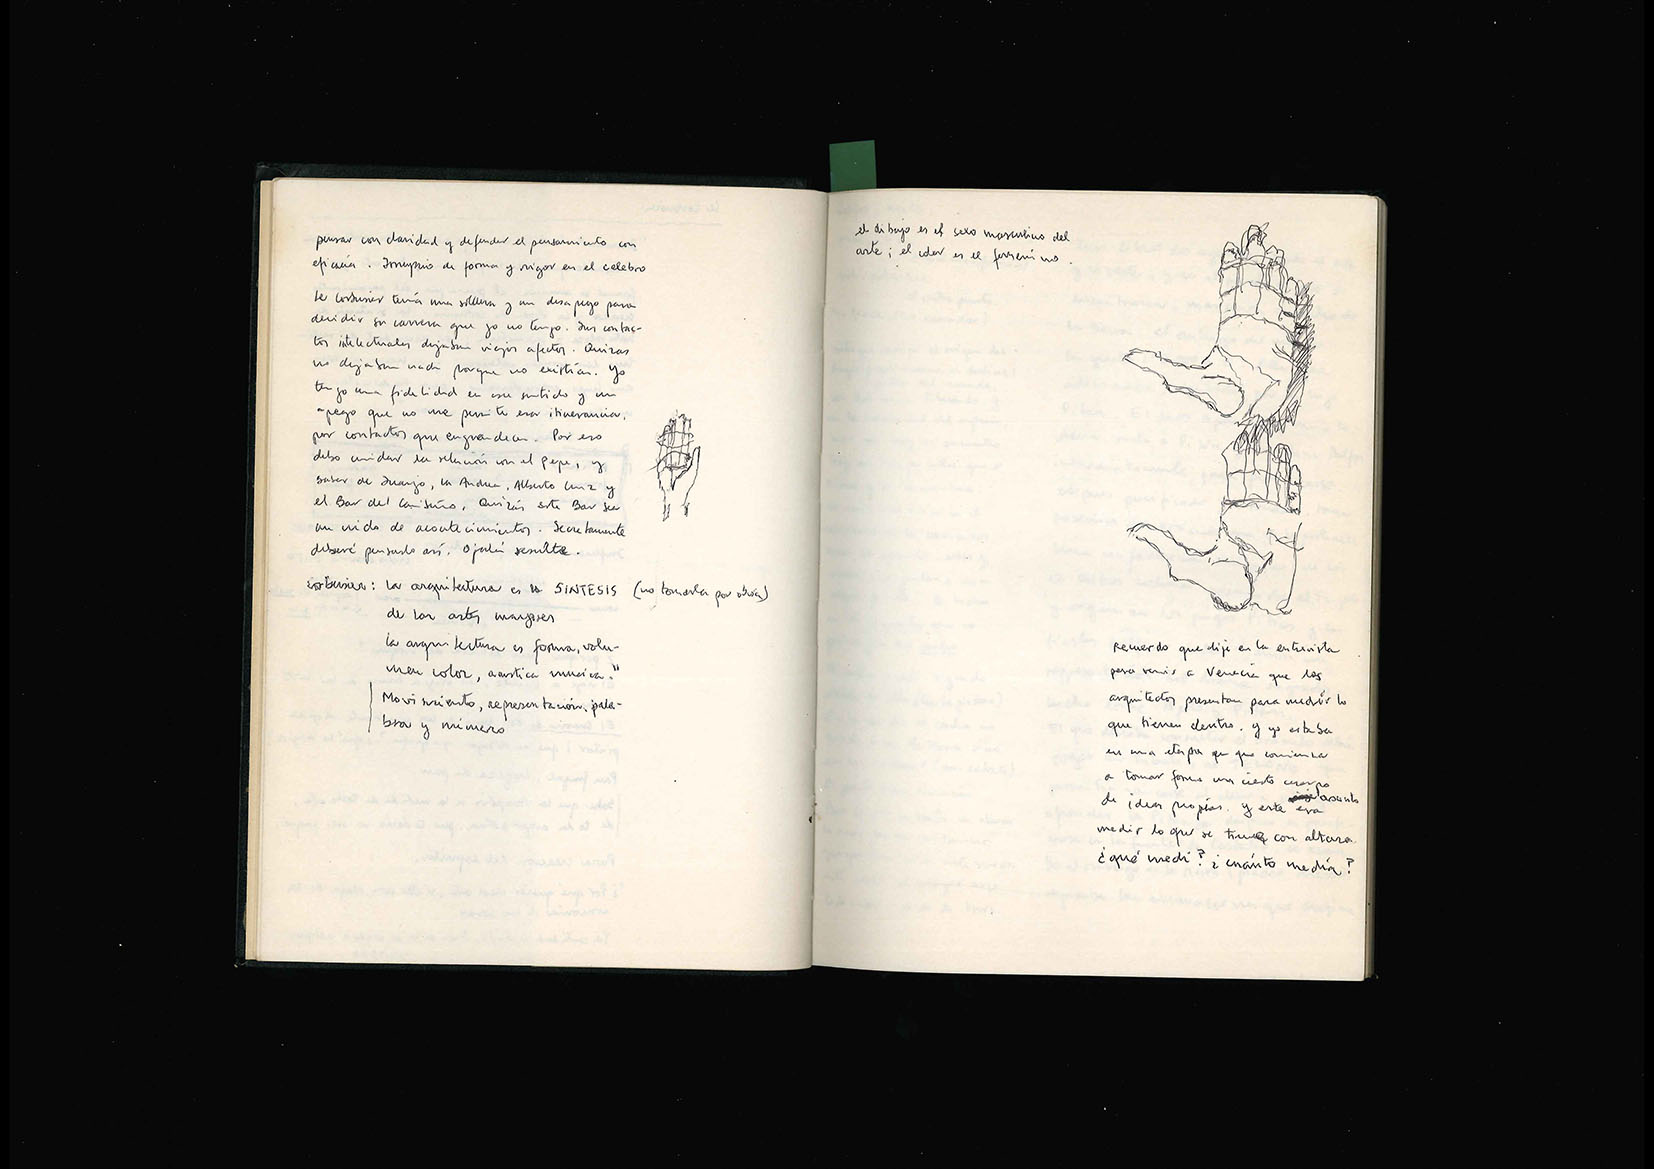 pensar con claridad y defender el pensamiento con
eficacia. de forma y rigor en el celebro
Le Corbusier tenía una soltura y un desapego para
decidir su carrera que yo no tengo. Sus contac-
tos intelectuales dejaban viejos afectos. Quizás
no dejaban nada porque no existían. Yo
tengo una fidelidad en ese sentido y un
apego que no me permite esa itinerancia,
por contactos que engrandecen. Por eso
debo cuidar la relación con el Pepe, y
saber de Juanjo, la Andrea, Alberto Cruz y
el Bar del Camiseño, Quizás este Bar sea
un nido de acontecimientos. Secretamente
deberé pensarlo así. Ojalá resulte.
Corbusier: la arquitectura es la SINTESIS (no tomarla por obvia)
de las artes mayores
la arquitectura es forma, volu-
men color, acústica música."
Movimiento, representación, pala-
bra y número
el dibujo es el sexo masculino del
arte; el color es el femenino.
recuerdo que dije en la entrevista
para venir a Venecia que los
arquitectos presentan para medir lo
que tienen dentro. y yo estaba
en una etapa en que comienza
a tomar forma un cierto cuerpo
de ideas propias. y este era asunto
medir lo que se tiene con altura
¿qué medí? ¿cuánto medía?